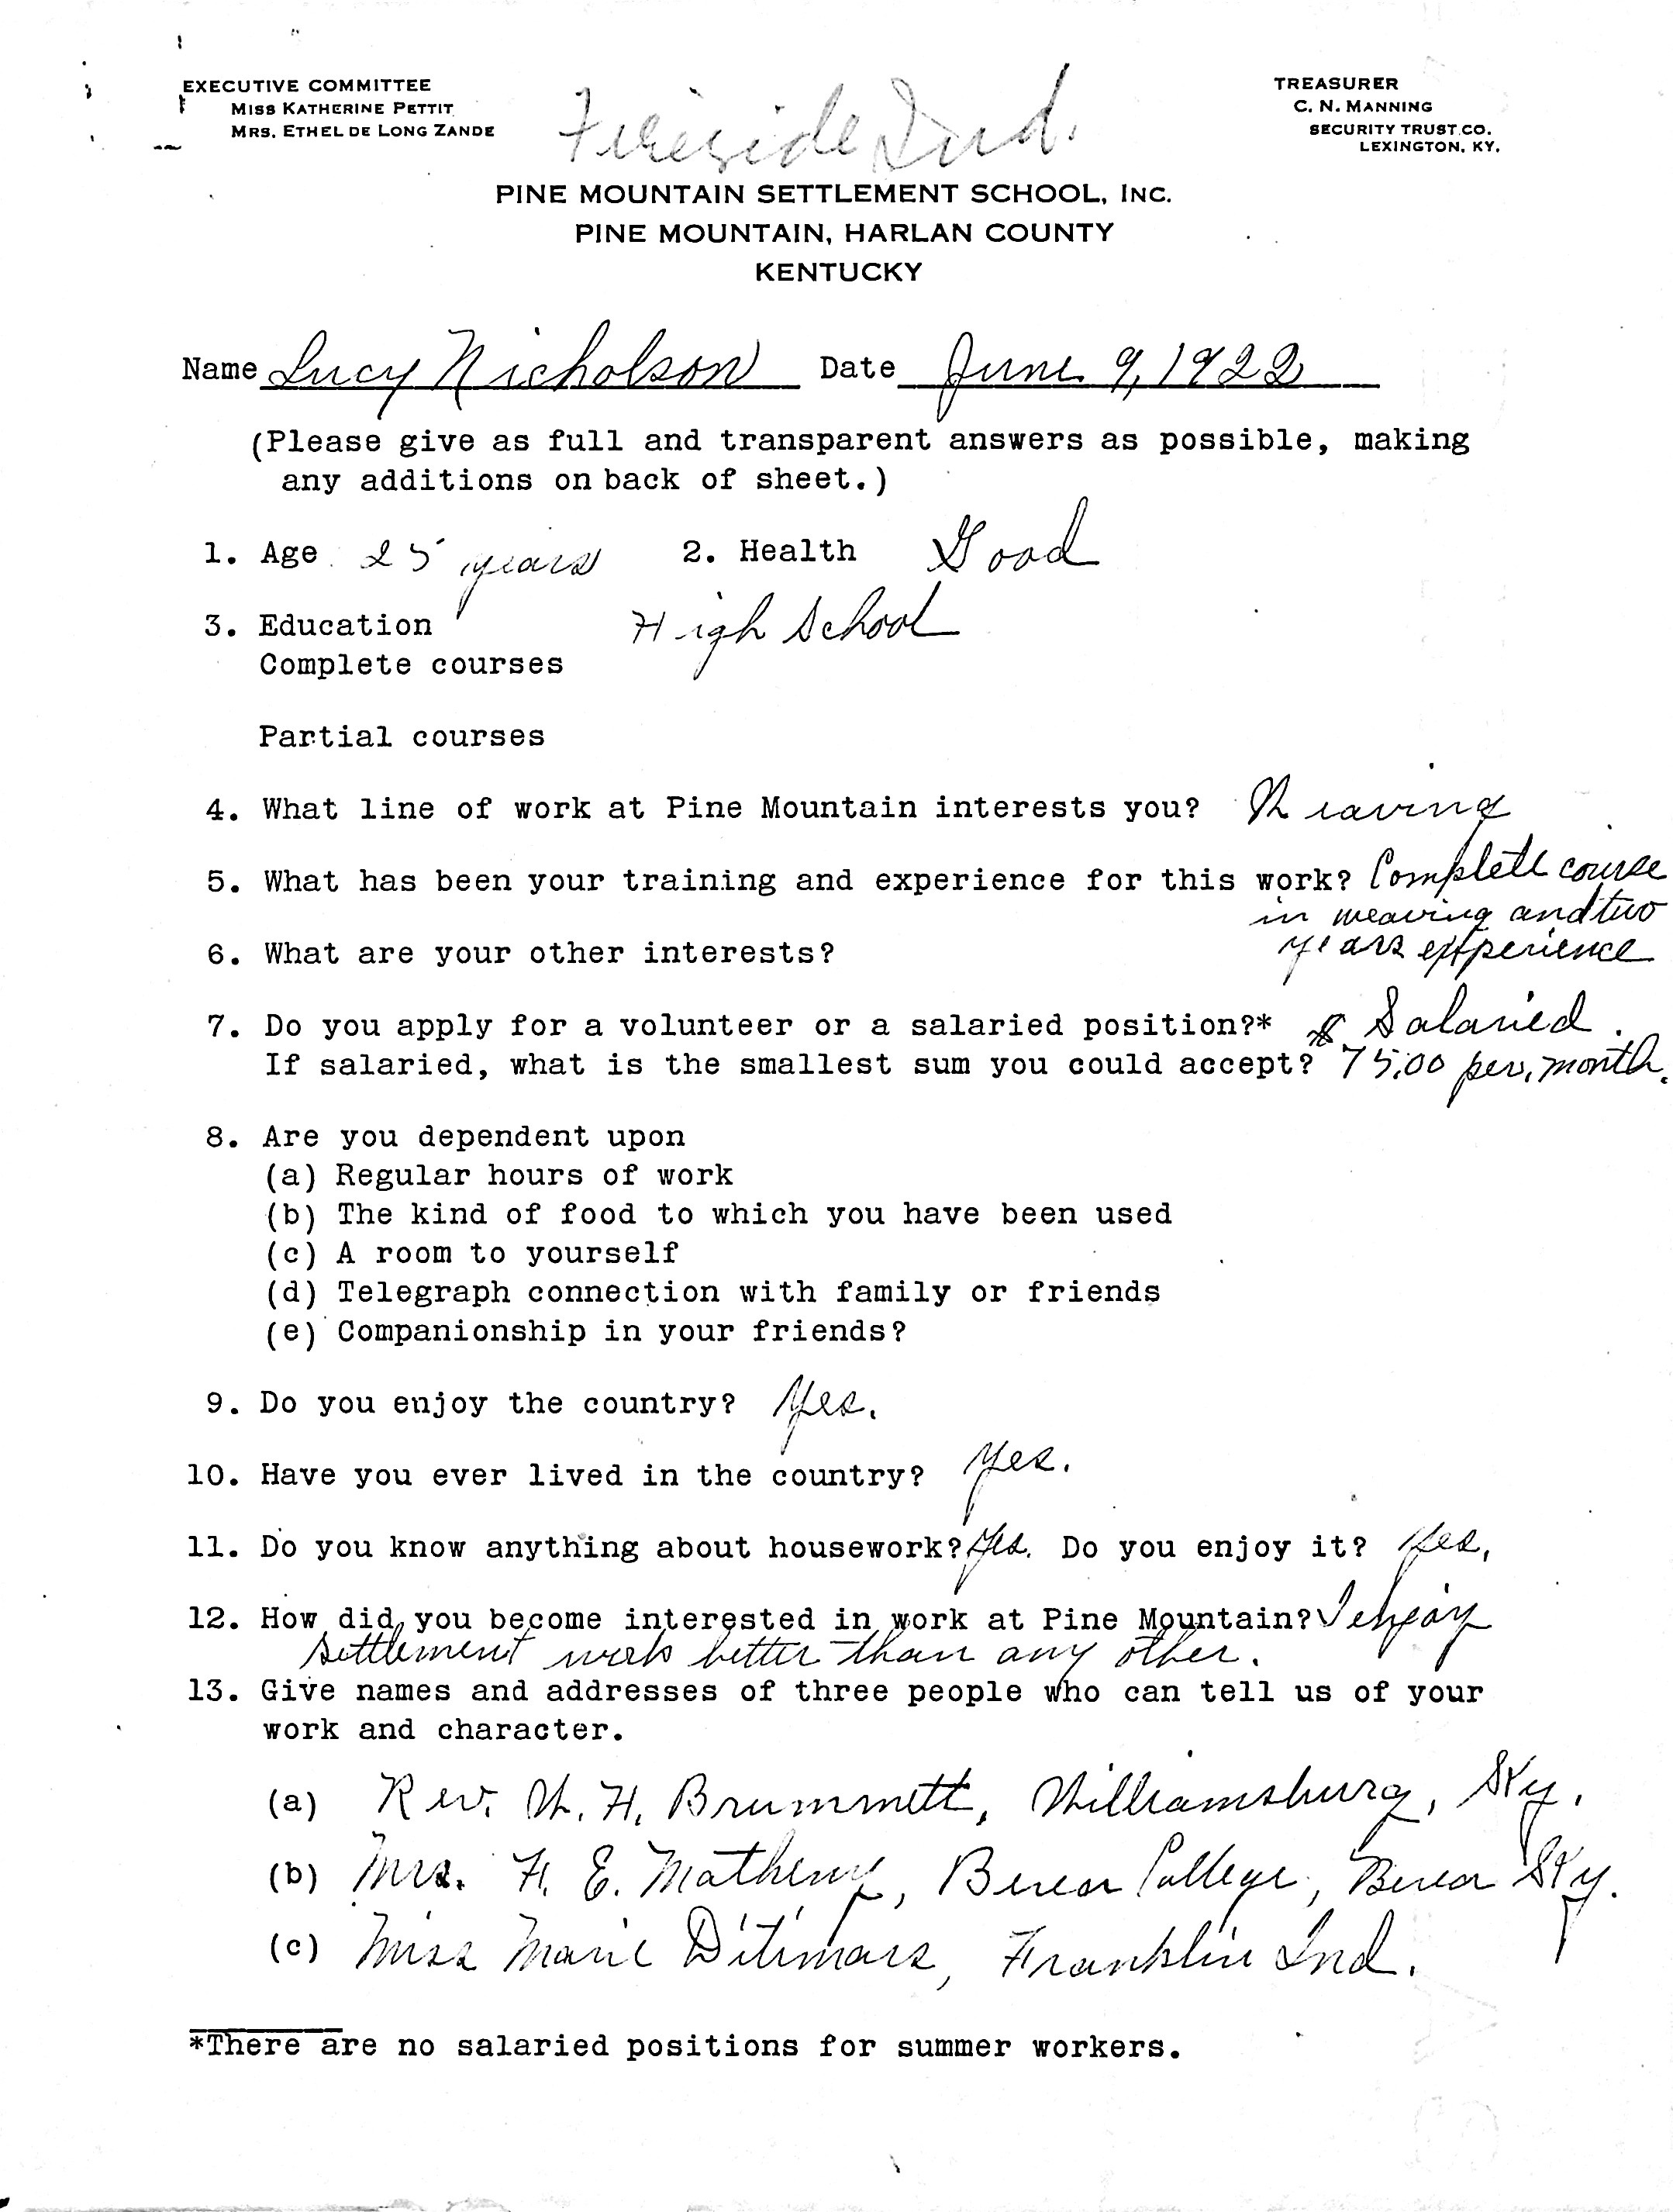 EXECUTIVE COMMITTEE
MISS KATHERINE PETTIT
MRS. ETHEL DE LONG ZANDE
TREASURER
C. N. MANNING
SECURITY TRUST CO.
LEXINGTON, KY.
Fireside Ind.
PINE MOUNTAIN SETTLEMENT SCHOOL, INC.
PINE MOUNTAIN, HARLAN COUNTY
KENTUCKY
Name Lucy Nicholson Date June 9, 1922
(Please give as full and transparent answers as possible, making
any additions on back of sheet.)
1. Age 25 years 2. Health Good
3. Education High School
Complete courses
Partial courses
4. What line of work at Pine Mountain interests you? Weaving
5. What has been your training and experience for this work? Complete course
in weaving and two
6. What are your other interests? years experience
7. Do you apply for a volunteer or a salaried position?* Salaried.
If salaried, what is the smallest sum you could accept? $75.00 per. month.
8. Are you dependent upon
(a) Regular hours of work
(b) The kind of food to which you have been used
(c) A room to yourself
(d) Telegraph connection with family or friends
(e) Companionship in your friends?
9. Do you enjoy the country? Yes.
10. Have you ever lived in the country? Yes.
11. Do you know anything about housework? Yes. Do you enjoy it? Yes,
12. How did you become interested in work at Pine Mountain? I enjoy
settlement work better than any other.
13. Give names and addresses of three people who can tell us of your
work and character.
(a) Rev. W. H. Brummett, Williamsburg, Ky.
(b) Mrs. H. E. Matheny, Berea College, Berea Ky.
(c) Miss Marie Ditmars, Franklin Ind.
*There are no salaried positions for summer workers.